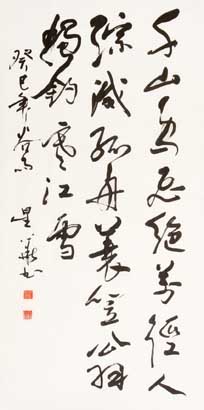 千山鳥飛絕萬徑人
踪滅孤舟蓑笠翁
獨釣寒江雪
癸巳年谷雨
星書